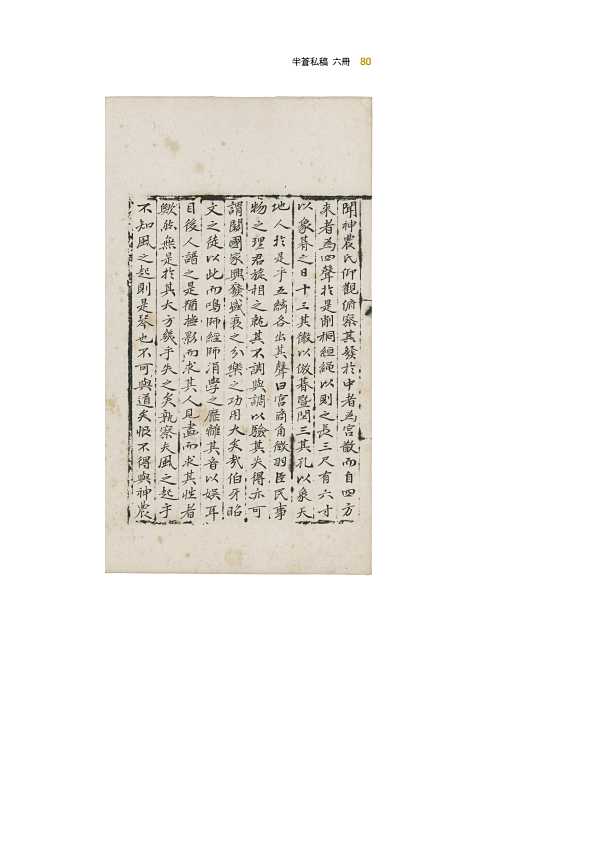 半蒼私稿 六冊 80
聞神農氏仰觀俯察其發於中者為宮散而自四方
來者為四聲於是削桐絙繩以則之長三尺有六寸
以象朞之日十三其徽以倣朞暨閏三其孔以象天
地人於是乎五絃各出其聲曰宮商角徵羽臣民事
物之理君旋相之執其不調與調以驗其失得亦可
謂關國家興發盛衰之分樂之功用大矣哉伯牙昭
文之徒以此而鳴師經師涓學之靡雜其音以娱耳
目後人譜之是猶撫影而求其人見畫而求其性者
歟於無是於其大方幾乎失之矣孰察夫風之起乎
不知風之起則是琴也不可與道矣恨不得與神農